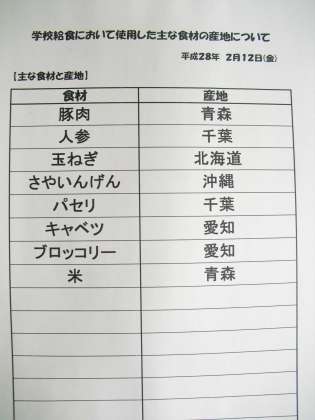 学校給食において使用した主な食材の産地について
平成28年 2月12日(金)
【主な食材と産地】
食材 産地
豚肉 青森
人参 千葉
玉ねぎ 北海道
さやいんげん 沖縄
パセリ 千葉
キャベツ 愛知
ブロッコリー 愛知
米 青森